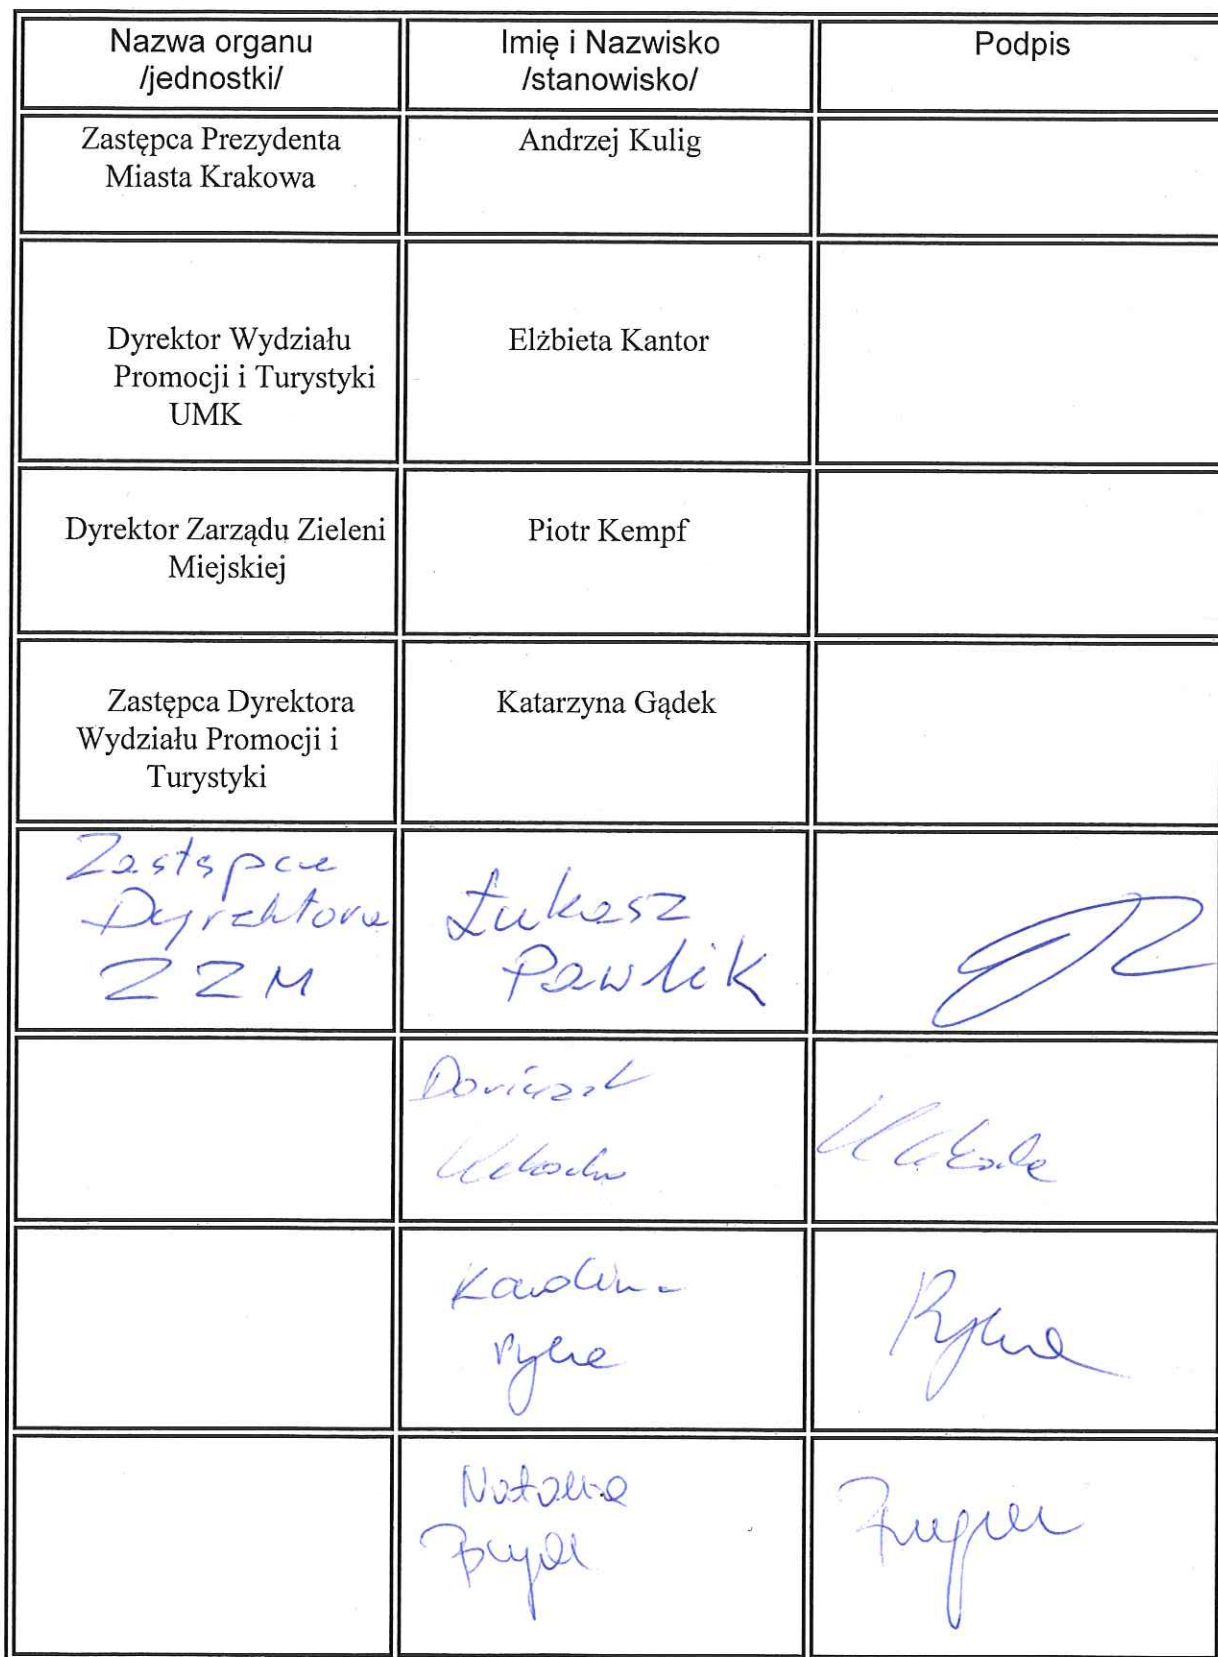 Nazwa organu
/jednostki/
Imię i Nazwisko
/stanowisko/
Podpis
Zastępca Prezydenta
Miasta Krakowa
Andrzej Kulig
Dyrektor Wydziału
Promocji i Turystyki
UMK
Elżbieta Kantor
Dyrektor Zarządu Zieleni
Miejskiej
Piotr Kempf
Zastępca Dyrektora
Wydziału Promocji i
Turystyki
Katarzyna Gądek
Zastępca
Dyrektora
ZZM
Łukasz
Pawlik
Karolina
Natalia